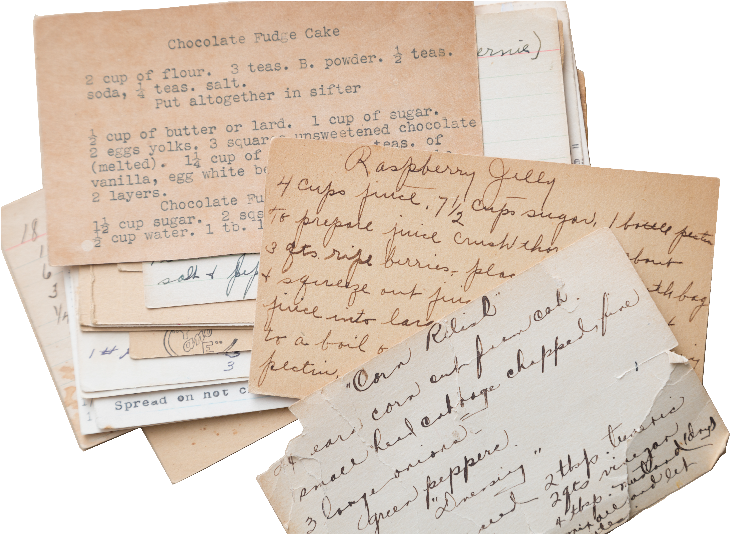 Chocolate Fudge Cake
2 cup of flour. 3 teas. B. powder. ½ teas.
soda, ¼ teas. salt.
Put altogether in sifter
½ cup of butter or lard. 1 cup of sugar.
2 eggs yolks. 3 squares unsweetened chocolate
(melted). 1¼ cup of teas. of
vanilla, egg white be
2 layers.
Chocolate Fu
1½ cup sugar. 2 sqs
½ cup water. 1 tb. l
ernie)
Raspberry Jelly
4 cups juice. 7½ cups sugar, 1 bottle pectin
to prepare juice crush tho about
3 qts. ripe berries, plac th bag
& squeeze out jui
juice into lar
to a boil
pectin,
18
1
6
3
1/4
salt & pep
1 #
3
Spread on not c
"Corn Relish"
ears corn cut from cob.
small head cabbage chopped fine
3 large onions
green peppers.
"Dressing"
2 tbsp tumeric
2 qts vinegar
4 tbsp. mustard
mix all and let